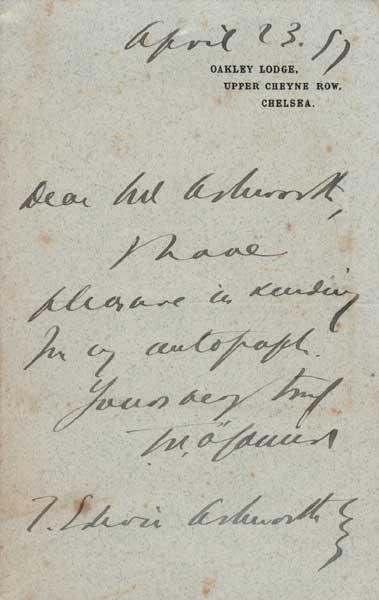 April 23. 87
OAKLEY LODGE,
UPPER CHEYNE ROW,
CHELSEA.
Dear Mr Ashworth,
I have
pleasure in sending
you my autograph.
Yours very truly
T. Edwin Ashworth